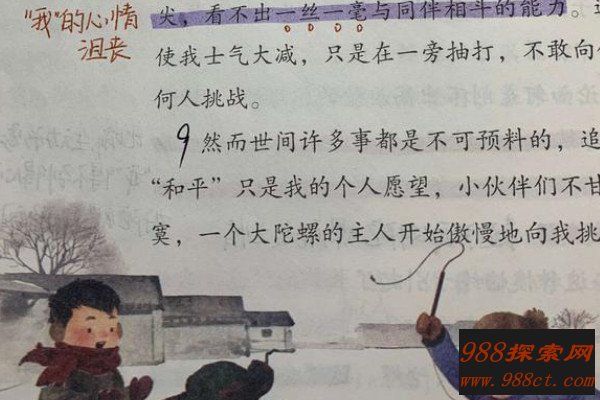 "我"的心情
沮丧
尖，看不出一丝一毫与同伴相斗的能力。
使我士气大减，只是在一旁抽打，不敢向
何人挑战。
9 然而世间许多事都是不可预料的，追
“和平”只是我的个人愿望，小伙伴们不甘
寞，一个大陀螺的主人开始傲慢地向我挑
988探索网
www.988ct.com